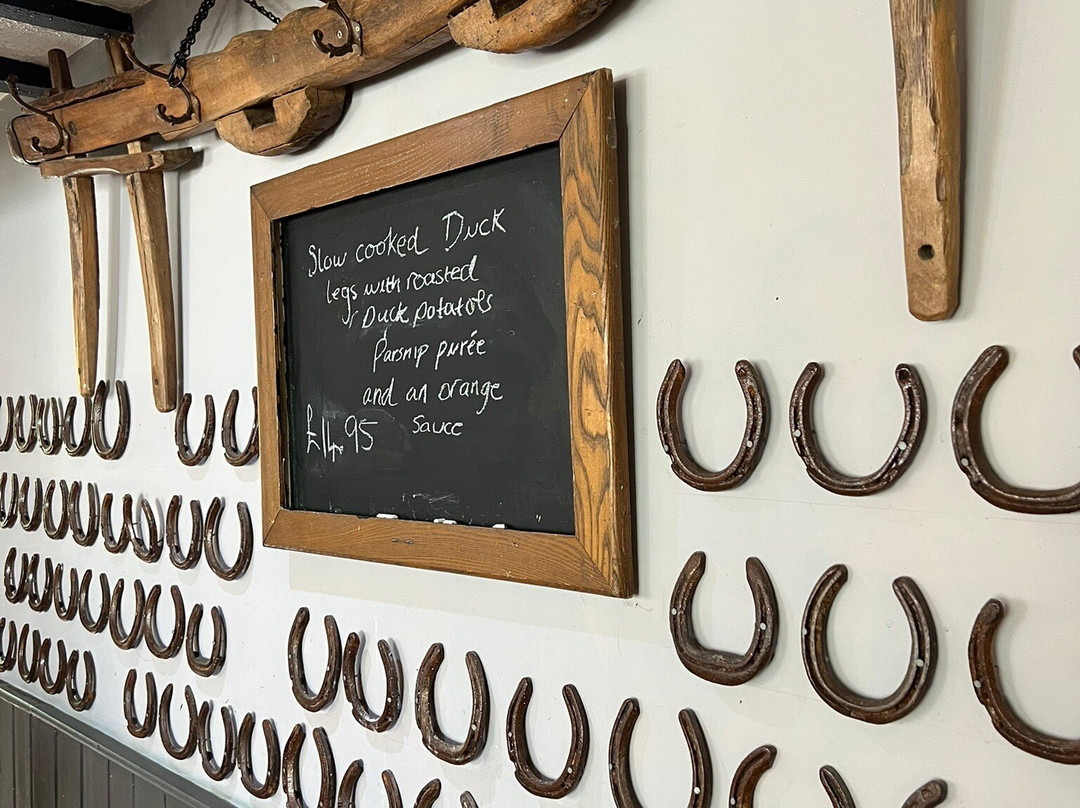 Slow cooked Duck
legs with roasted
Duck potatoes
& Parsnip purée
and an orange
sauce
£14.95